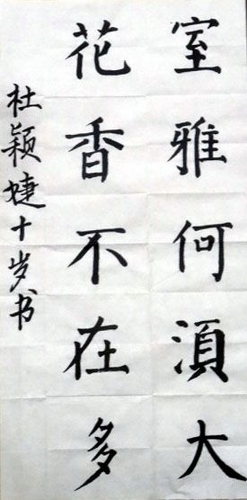 室雅何湏大
花香不在多
杜颖婕十岁书